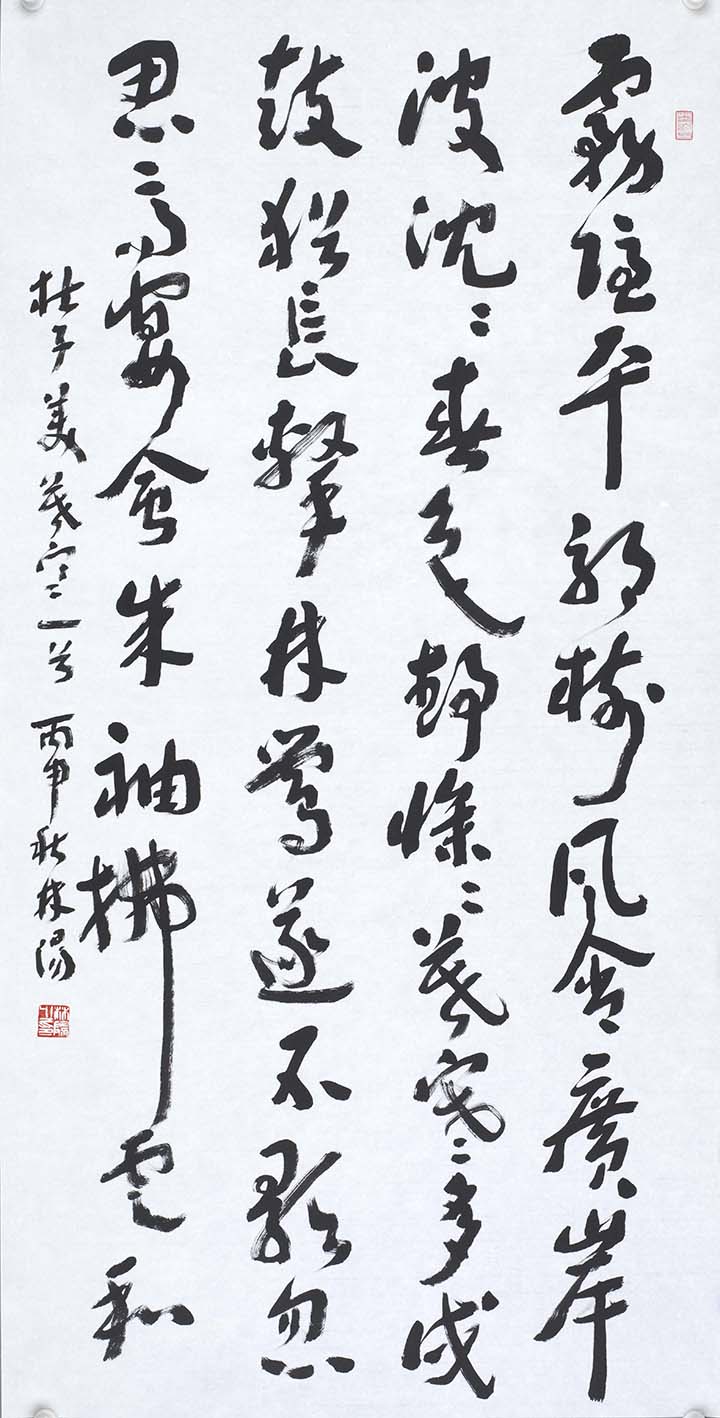 霧隱平郊樹風含廣岸
波沈〻春色靜慘〻暮寒多戍
鼓猶長擊林鶯遂不歌忽
思高宴會朱袖拂雲和
杜子美暮寒一首 丙申秋林